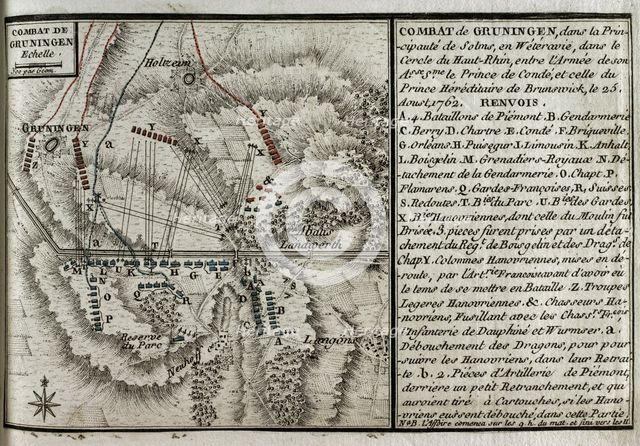 COMBAT DE
GRUNINGEN
Echelle.
300 pas Geom.
Holtzeim
GRUNINGEN
Abatis
Landwerth
Reserve
du Parc
Neuhoff
Langöns
COMBAT de GRUNINGEN, dans la Prin-
cipauté de Solms, en Wétéravie, dans le
Cercle du Haut-Rhin, entre l'Armée de son
A.sse S.me le Prince de Condé, et celle du
Prince Héréditaire de Brunswick, le 25.
Aoust, 1762. RENVOIS.
A. 4. Bataillons de Piémont. B. Gendarmerie
C. Berry D. Chartre Æ. Condé. F. Briqueville.
G. Orléans. H. Puisegur I. Limousin. K. Anhalt.
L. Boisgelin M. Grenadiers-Royaux N. Dé-
tachement de la Gendarmerie. O. Chapt P.
Flamarens. Q. Gardes-Françoises, R, Suisses.
S. Redoutes. T. B.ies du Parc. U. B.ies des Gardes.
X. B.ies Hanovriennes, dont celle du Moulin fut
Brisée. 3. pieces furent prises par un déta-
chement du Reg.t de Boisgelin et des Drag.s de
Chap. Y. Colonnes Hanovriennes, mises en dé-
route, par l'Art.rie Francoise avant d'avoir eu
le tems de se mettre en Bataille. Z. Troupes
Legeres Hanovriennes. &. Chasseurs Ha-
novriens, Fusillant avec les Chass.rs Fr.çois
Infanterie de Dauphiné et Wurmser. a.
Débouchement des Dragons, pour pour-
suivre les Hanovriens, dans leur Retrai-
te. b. 2. Pièces d'Artillerie de Piémont,
derriere un petit Retranchement, et qui
auroient tiré à Cartouches, si les Hano-
vriens eussent débouché, dans cette Partie.
N.a B. l'Affaire comença sur les 9 h. du mat. et fini vers les 11.